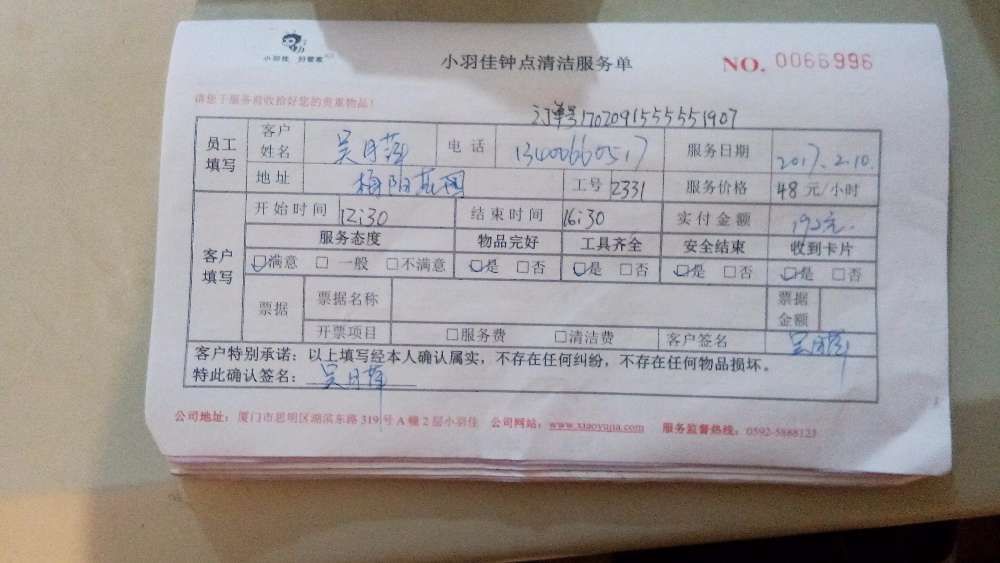 小羽佳 好管家
小羽佳钟点清洁服务单
NO. 0066996
请您于服务前收拾好您的贵重物品！
订单号1702091555551907
员工填写 客户姓名 吴月萍 电话 13400660517 服务日期 2017.2.10.
地址 梅阳花园 工号 2331 服务价格 48元/小时
客户填写 开始时间 12:30 结束时间 16:30 实付金额 192元
服务态度 物品完好 工具齐全 安全结束 收到卡片
☑满意 □一般 □不满意 ☑是 □否 ☑是 □否 ☑是 □否 ☑是 □否
票据 票据名称 票据金额
开票项目 □服务费 □清洁费 客户签名 吴月萍
客户特别承诺：以上填写经本人确认属实，不存在任何纠纷，不存在任何物品损坏。
特此确认签名：吴月萍
公司地址：厦门市思明区湖滨东路319号A幢2层小羽佳 公司网站：www.xiaoyujia.com 服务监督热线：0592-5888123